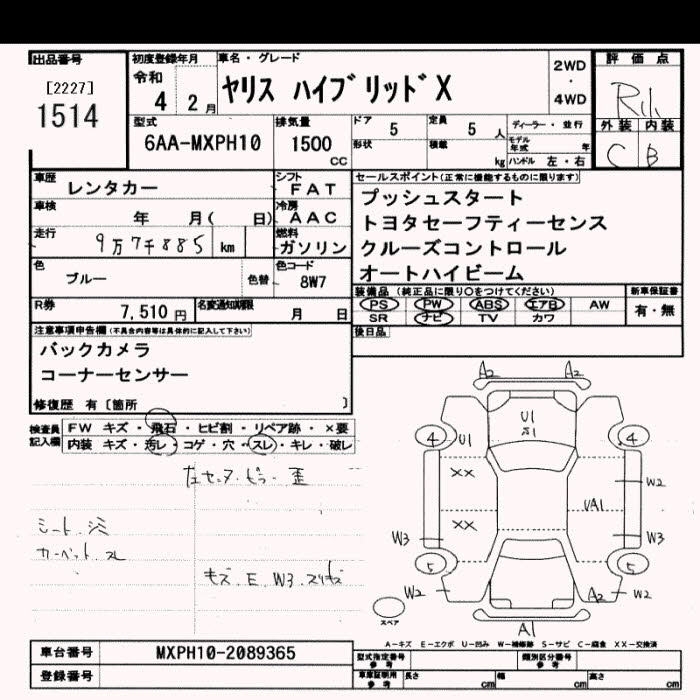 出品番号
[2227]
1514
初度登録年月
令和
4 2月
車名・グレード
ヤリス ハイブリッドX
2WD
・
4WD
評価点
R1
外装 内装
C B
型式
6AA-MXPH10
排気量
1500
CC
ドア
5
形状
定員
5 人
積載
kg
ディーラー・並行
モデル年式 年
ハンドル 左・右
車歴
レンタカー
シフト
FAT
車検
年 月( 日)
冷房
AAC
走行
9万7千885 km
燃料
ガソリン
セールスポイント(正常に機能するものに限ります)
プッシュスタート
トヨタセーフティーセンス
クルーズコントロール
オートハイビーム
色
ブルー
色替
色コード
8W7
装備品(純正品に限り〇をつけてください)
PS PW ABS エアB AW
SR ナビ TV カワ
新車保証書
有・無
R券
7,510円
名変通知期限
月 日
後日品
注意事項申告欄(不具合内容等は具体的に記入して下さい)
バックカメラ
コーナーセンサー
修復歴 有〔箇所 〕
検査員記入欄
FW キズ・飛石・ヒビ割・リペア跡・×要
内装 キズ・汚レ・コゲ・穴・スレ・キレ・破レ
左センターピラー歪
シート.シミ
カーペット.スレ
キズ.E.W3.スリキズ
A2 A2
U1
S1
4 U1 4
XX W2
UA1
XX
W3 W3
5 5
W2 A2 W2
スペア
A1
A-キズ E-エクボ U-凹み W-補修跡 S-サビ C-腐食 XX-交換済
車台番号
MXPH10-2089365
登録番号
型式指定番号
参考
類別区分番号
参考
車庫証明用
参考
長さ cm 幅 cm 高さ cm